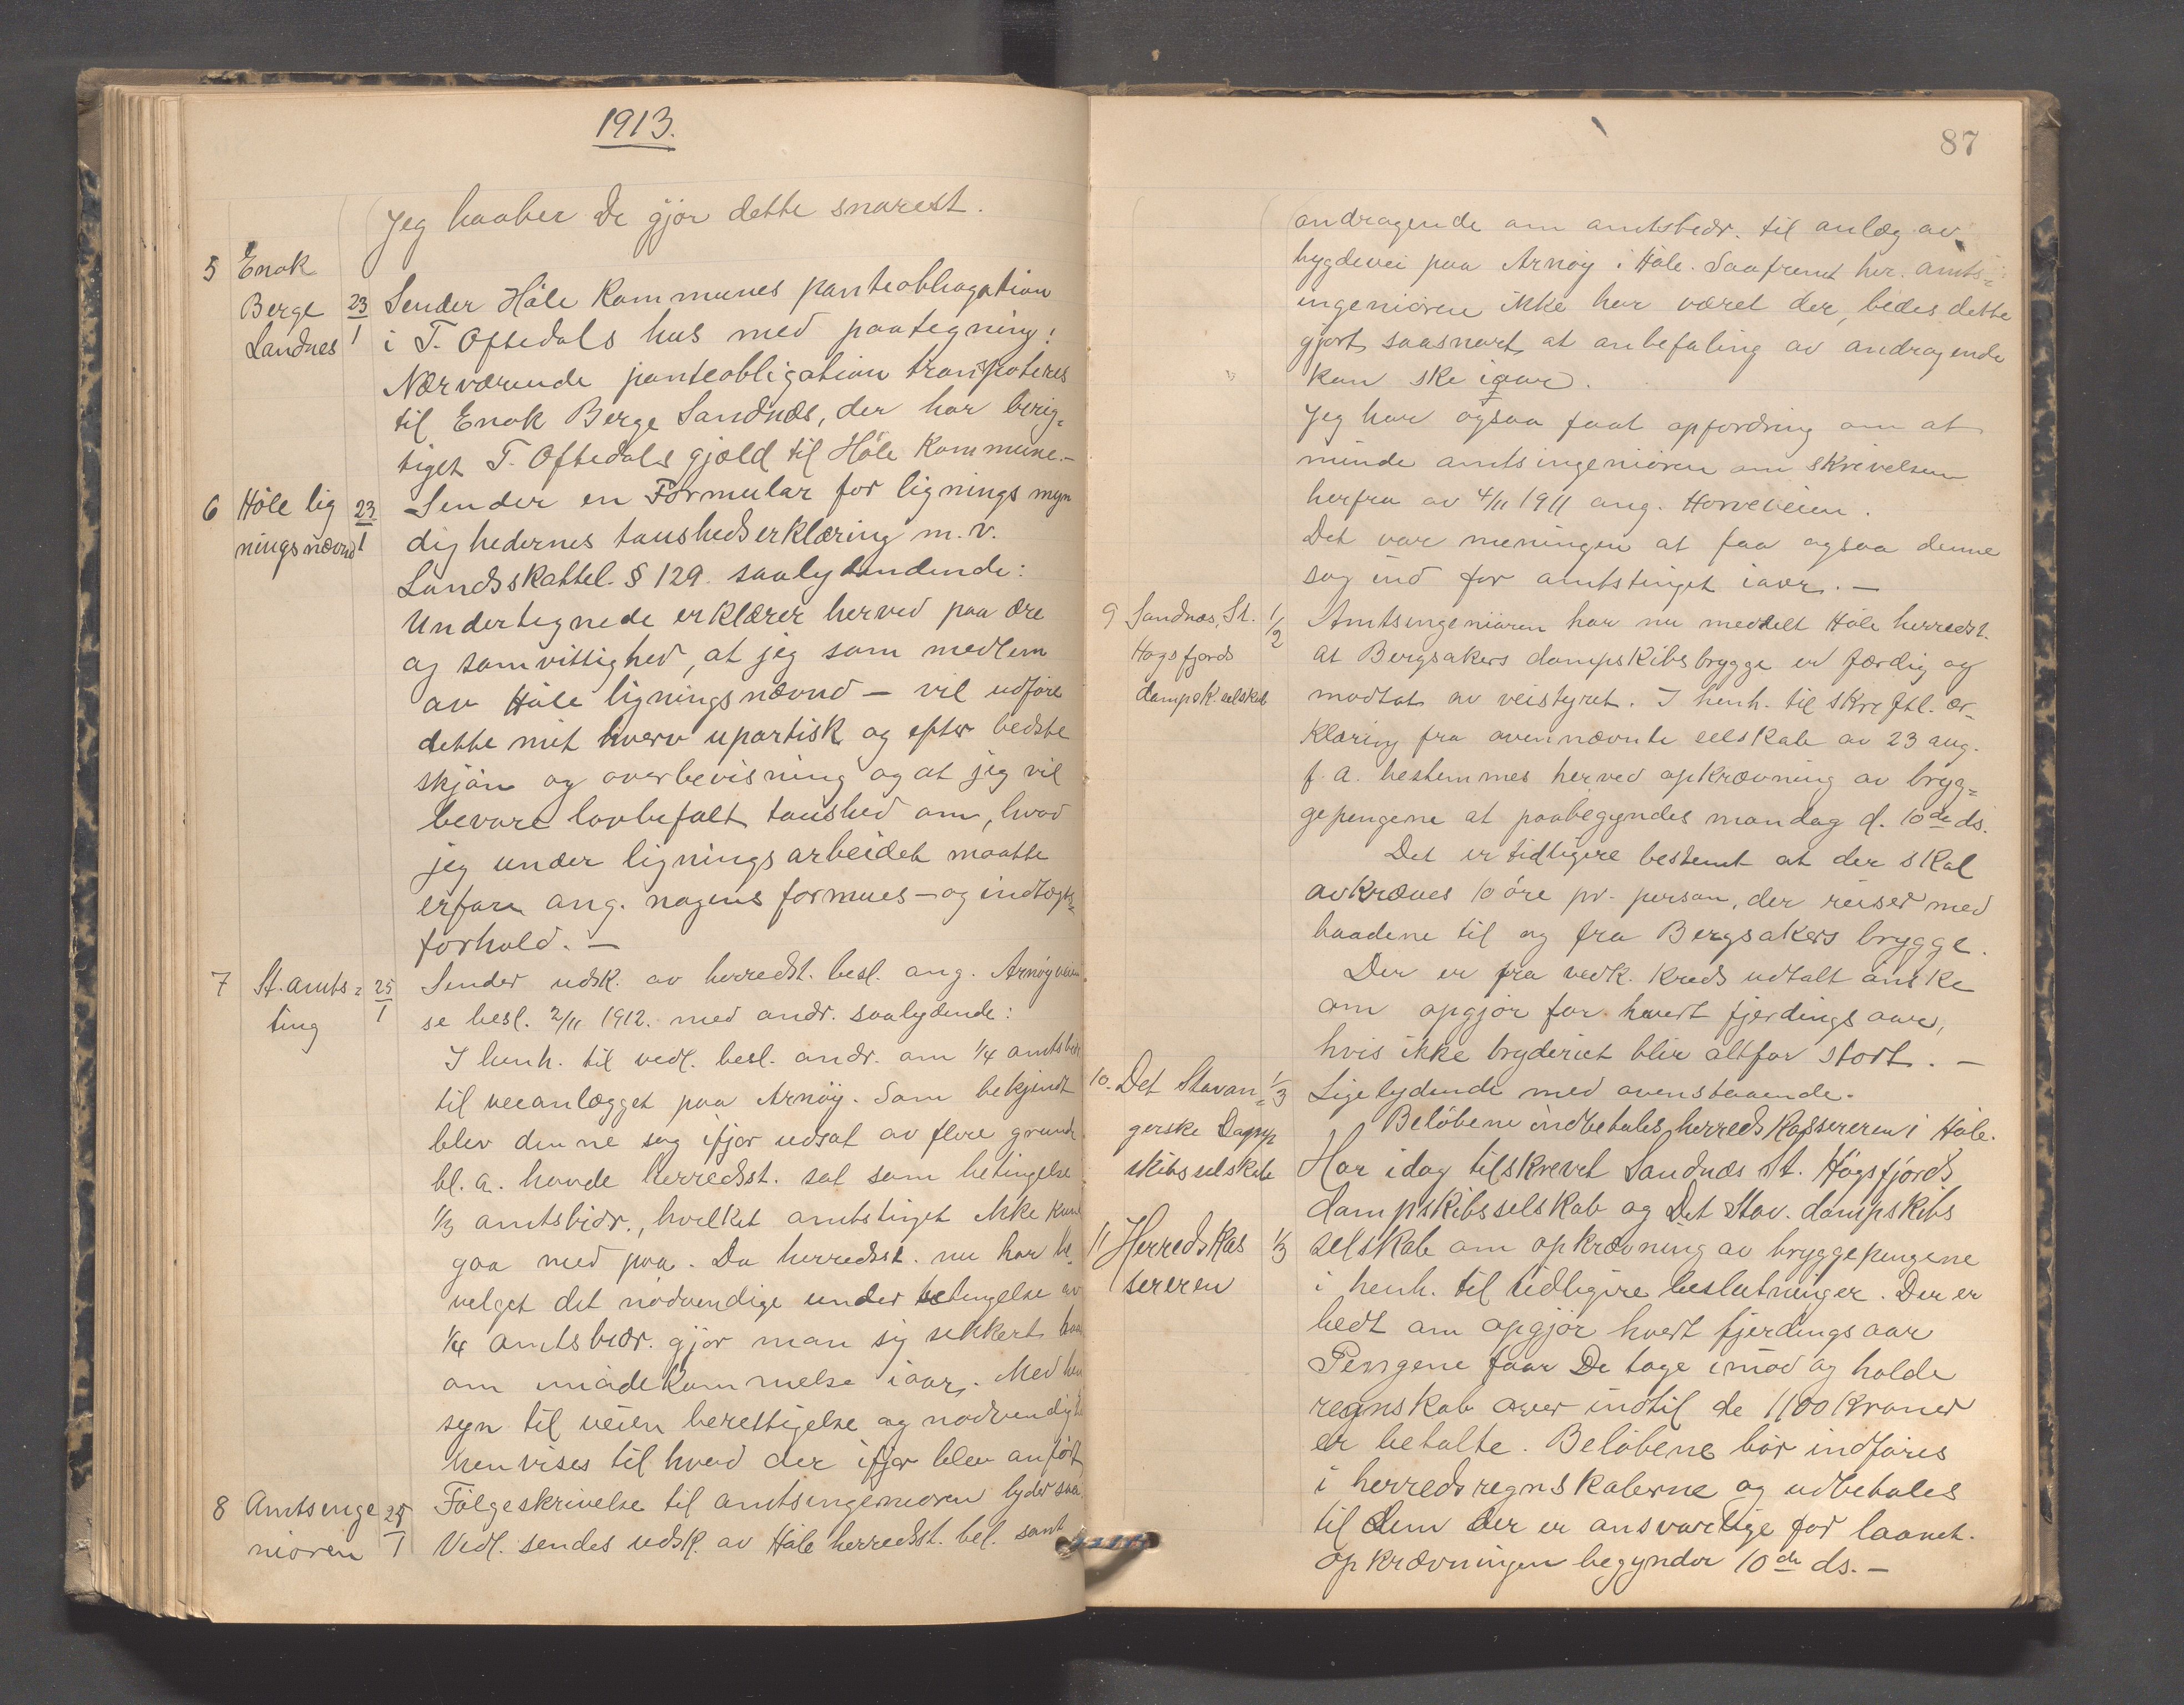 1913.
Jeg haaber De gjør dette snarest.
5 Enok
Berge 23/1
Sandnes
Sender Høle Kommunes panteobligation
i T. Oftedals hus med paategning:
Nærværende panteobligation transpoteres
til Enok Berge Sandnæs, der har berig-
tiget T. Oftedals gjæld til Høle Kommune.-
6 Høle lig 23/1
ningsnævnd
Sender en Formular for lignings myn
dighedernes taushedserklæring m.v.
Landsskattel. § 129. saalydendende:
Undertegnede erklærer herved paa ære
og samvittighed, at jeg som medlem
av Høle ligningsnævnd – vil udføre
dette mit hverv upartisk og efter bedste
skjøn og overbevisning og at jeg vil
bevare lovbefalt taushed om, hvad
jeg under ligningsarbeidet maatte
erfare ang. nogens formues – og indtægts-
forhold. –
7 St. amts- 25/1
ting
Sender udsk. av herredst. besl. ang. Arnøyveien
se besl. 2/11 1912. med andr. saalydende:
I henh. til vedl. besl. andr. om 1/4 amtsbidr
til veeanlægget paa Arnøy. Som bekjendt
blev denne sag ifjor udsat av flere grunde
bl. a. havde herredsst. sat som betingelse
1/3 amtsbidr., hvilket amtstinget ikke kunde
gaa med paa. Da herredsst. nu har be-
velget det nødvendige under betingelse av
1/4 amtsbidr. gjør man sig sikkert haab
om imødekommelse iaar. Med hen
syn til veien berettigelse og nødvendighed
henvises til hvad der ifjor blev anført
8 Amtsinge 25/1
niøren
Følgeskrivelse til amtsingeniøren lyder saa:
Vedl. sendes udsk. av Høle herredsst. bel. samt
87
andragende om amtsbidr. til anlæg av
bygdevei paa Arnøy i Høle. Saafremt hr. amts-
ingeniøren ikke har været der, bedes dette
gjort saasnart at anbefaling av andragende
kan ske iaar.
Jeg har ogsaa faat opfordring om at
minde amtsingeniøren om skrivelsen
herfra av 4/11 1911 ang. Horveveien.
Det var meningen at faa ogsaa denne
sag ind for amtstinget iaar. –
9 Sandnæs, St. 1/2
Høgsfjords
dampsk. selskab
Amtsingeniøren har nu meddelt Høle herredst.
at Bergsakers dampskibsbrygge er færdig og
modtat av veistyret. I henh. til skreftl. er-
klæring fra ovennævnte selskab av 23 aug.
f. a. bestemmes herved opkrævning av bryg-
gepengene at paabegyndes mandag d. 10de ds.
Det er tidligere bestemt at der skal
avkræves 10 øre pr. person, der reiser med
baadene til og fra Bergsakers brygge.
Der er fra vedk. kreds udtalt ønske
om opgjør for hvert fjerdingsaar,
hvis ikke bryderiet blir altfor stort. –
10. Det Stavan- 1/3
gerske Damp
skibsselskab
Ligelydende med ovenstaaende.
Beløbene indbetales herredskassereren i Høle.
11 Herredskas 1/3
sereren
Har idag tilskrevet Sandnæs St. Høgsfjords
dampskibsselskab og Det Stav. dampskibs
selskab om opkrævning av bryggepengene
i henh. til tidligere beslutninger. Der er
bedt om opgjør hvert fjerdingsaar
Pengene faar De tage imod og holde
regnskab over indtil de 1100 kroner
er betalte. Beløbene bør indføres
i herredsregnskaberne og udbetales
til dem der er ansvarlige for laanet.
Opkrævningen begynder 10de ds. –